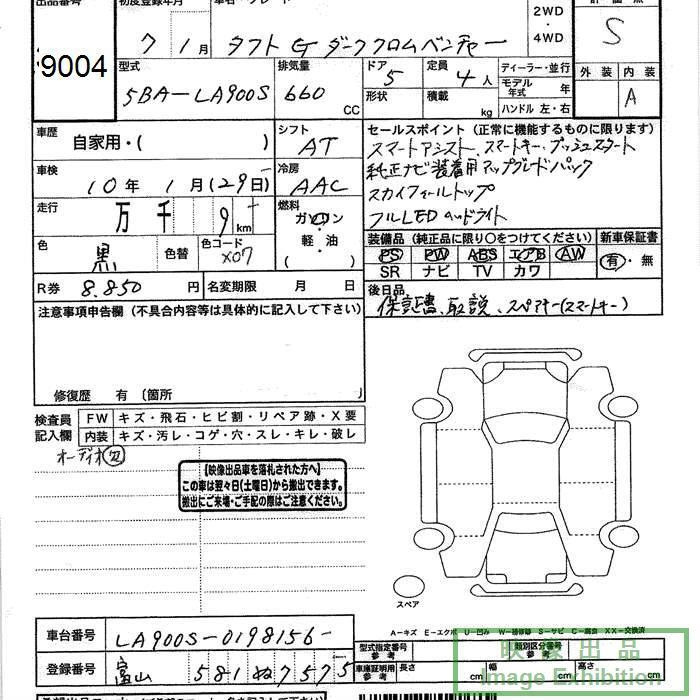 出品番号 初度登録年月 車名・グレード 評価点
7年1月 タフト G ダーククロムベンチャー 2WD・4WD S
9004
型式 排気量 ドア 定員 ディーラー・並行 外装 内装
5BA-LA900S 660 CC 5 4人 モデル年式 年 A
形状 積載 kg ハンドル 左・右
車歴 自家用・( ) シフト AT
セールスポイント(正常に機能するものに限ります)
スマートアシスト、スマートキー・プッシュスタート
純正ナビ装着用アップグレードパック
スカイフィールトップ
フルLEDヘッドライト
車検 10年 1月(29日) 冷房 AAC
走行 万 千 9 km 燃料 ガソリン・軽・油 ( )
色 黒 色替 色コード X07
装備品(純正品に限り○をつけてください) 新車保証書
PS PW ABS エアB AW 有・無
SR ナビ TV カワ
R券 8.850円 名変期限 月 日
後日品
保証書、取説、スペアキー(スマートキー)
注意事項申告欄(不具合内容等は具体的に記入して下さい)
修復歴 有〔箇所
検査員記入欄 FW キズ・飛石・ヒビ割・リペア跡・X要
内装 キズ・汚レ・コゲ・穴・スレ・キレ・破レ
オーディオ欠
【映像出品車を落札された方へ】
この車は翌々日(土曜日)から搬出できます。
搬出にご来場・ご手配の際はご注意ください。
スペア
A-キズ E-エクボ U-凹み W-補修跡 S-サビ C-腐食 XX-交換済
車台番号 LA900S-0198156-
型式指定番号 参考 類別区分番号 参考
登録番号 富山 581 ぬ 7575
車庫証明用 参考 長さ cm 幅 cm 高さ cm
映像出品
Image Exhibition